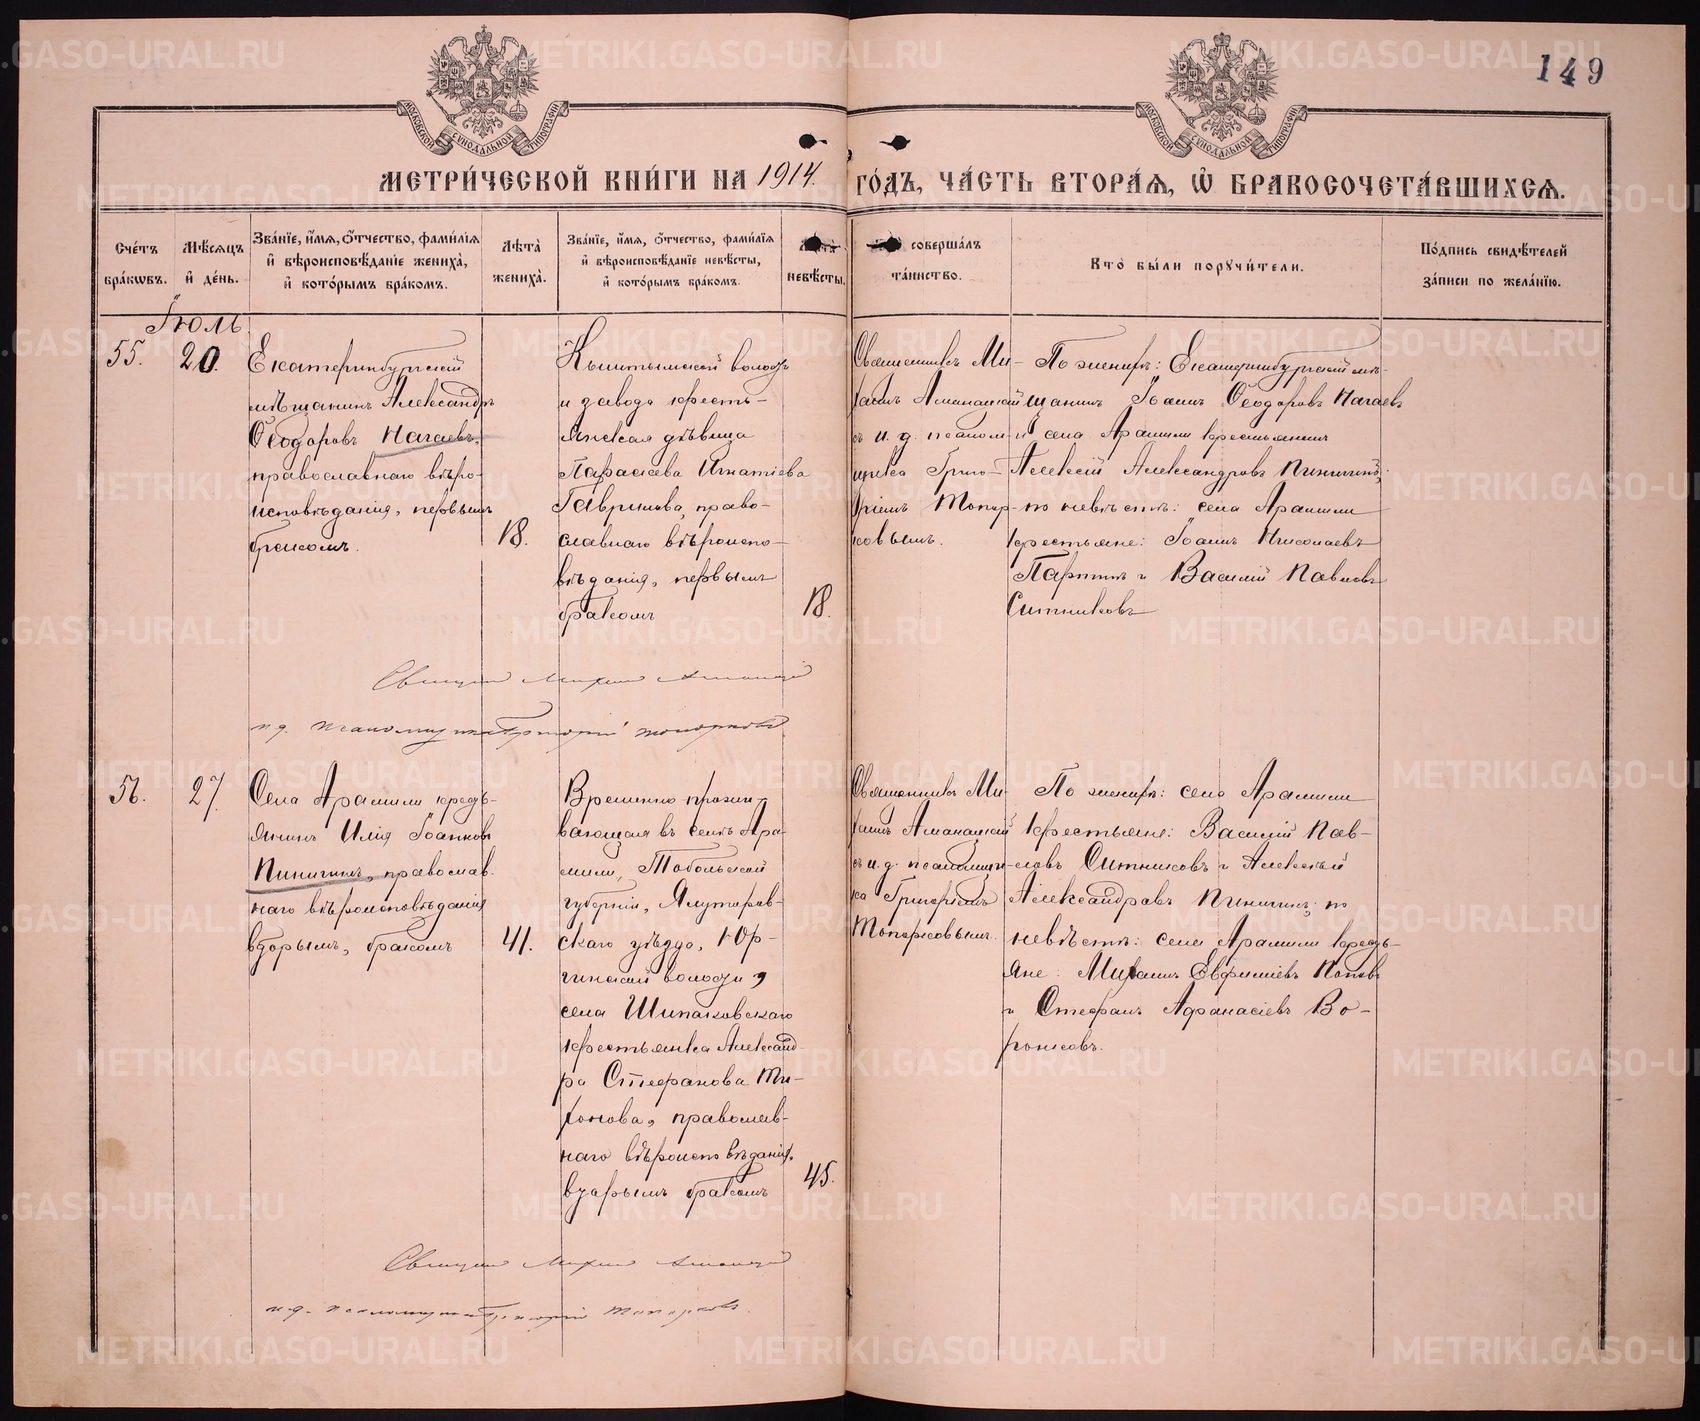 149
МОСКОВСКОЙ СѴНОДАЛЬНОЙ ТИПОГРАФІИ
МОСКОВСКОЙ СѴНОДАЛЬНОЙ ТИПОГРАФІИ
МЕТРИ́ЧЕСКОЙ КНИ́ГИ НА 1914. ГО́ДЪ, ЧА́СТЬ ВТОРА́Ѧ, Ѡ҆ БРАКОСОЧЕТА́ВШИХСѦ.
Сче́тъ бра́кѡвъ.
Мѣ́сѧцъ и҆ де́нь.
Зва́нїе, и҆́мѧ, ѻ҆́тчество, фами́лїѧ и҆ вѣроисповѣ́данїе жениха̀, и҆ кото́рымъ бра́комъ.
Лѣта̀ жениха̀.
Зва́нїе, и҆́мѧ, ѻ҆́тчество, фами́лїѧ и҆ вѣроисповѣ́данїе невѣ́сты, и҆ кото́рымъ бра́комъ.
невѣ́сты.
соверша́лъ та́инство.
Кто̀ бы́ли порꙋчи́тели.
По́дпись свидѣ́телей за́писи по жела́нїю.
Іюль
55.
20.
Екатеринбургскій
мѣщанинъ Александръ
Ѳеодоровъ Нагаевъ,
православнаго вѣро-
исповѣданія, первымъ
бракомъ.
18.
Кыштымской волости
и завода кресть-
янская дѣвица
Параскева Игнатіева
Гаврилова, право-
славнаго вѣроиспо-
вѣданія, первымъ
бракомъ
18.
Священникъ Ми-
хаилъ Аманацкій
съ и. д. псалом-
щика Григо-
ріемъ Топор-
ковымъ.
По женихѣ: Екатеринбургскій мѣ-
щанинъ Іоаннъ Ѳеодоровъ Нагаевъ
и села Арамили крестьянинъ
Алексій Александровъ Пинигинъ;
по невѣстѣ: села Арамили
крестьяне: Іоаннъ Николаевъ
Партинъ и Василій Павловъ
Ситниковъ
Священникъ Михаилъ Аманацкій
и. д. псаломщика Григорій Топорковъ
56.
27.
Села Арамили кресть-
янинъ Илія Іоанновъ
Пинигинъ, православ-
наго вѣроисповѣданія
вторымъ, бракомъ
41.
Временно прожи-
вающая въ селѣ Ара-
мили, Тобольской
губерніи, Ялуторов-
скаго уѣзда, Юр-
гинской волости,
села Шипаковскаго
крестьянка Александ-
ра Стефанова Ти-
хонова, православ-
наго вѣроисповѣданія,
вторымъ бракомъ
45.
Священникъ Ми-
хаилъ Аманацкій
съ и. д. псаломщи-
ка Григоріемъ
Топорковымъ.
По женихѣ: села Арамили
крестьяне: Василій Пав-
ловъ Ситниковъ и Алексѣй
Александровъ Пинигинъ; по
невѣстѣ: села Арамили кресть-
яне: Михаилъ Евфиміевъ Поповъ
и Стефанъ Афанасіевъ Во-
ронковъ.
Священникъ Михаилъ Аманацкій
и. д. псаломщика Григорій Топорковъ.
METRIKI.GASO-URAL.RU